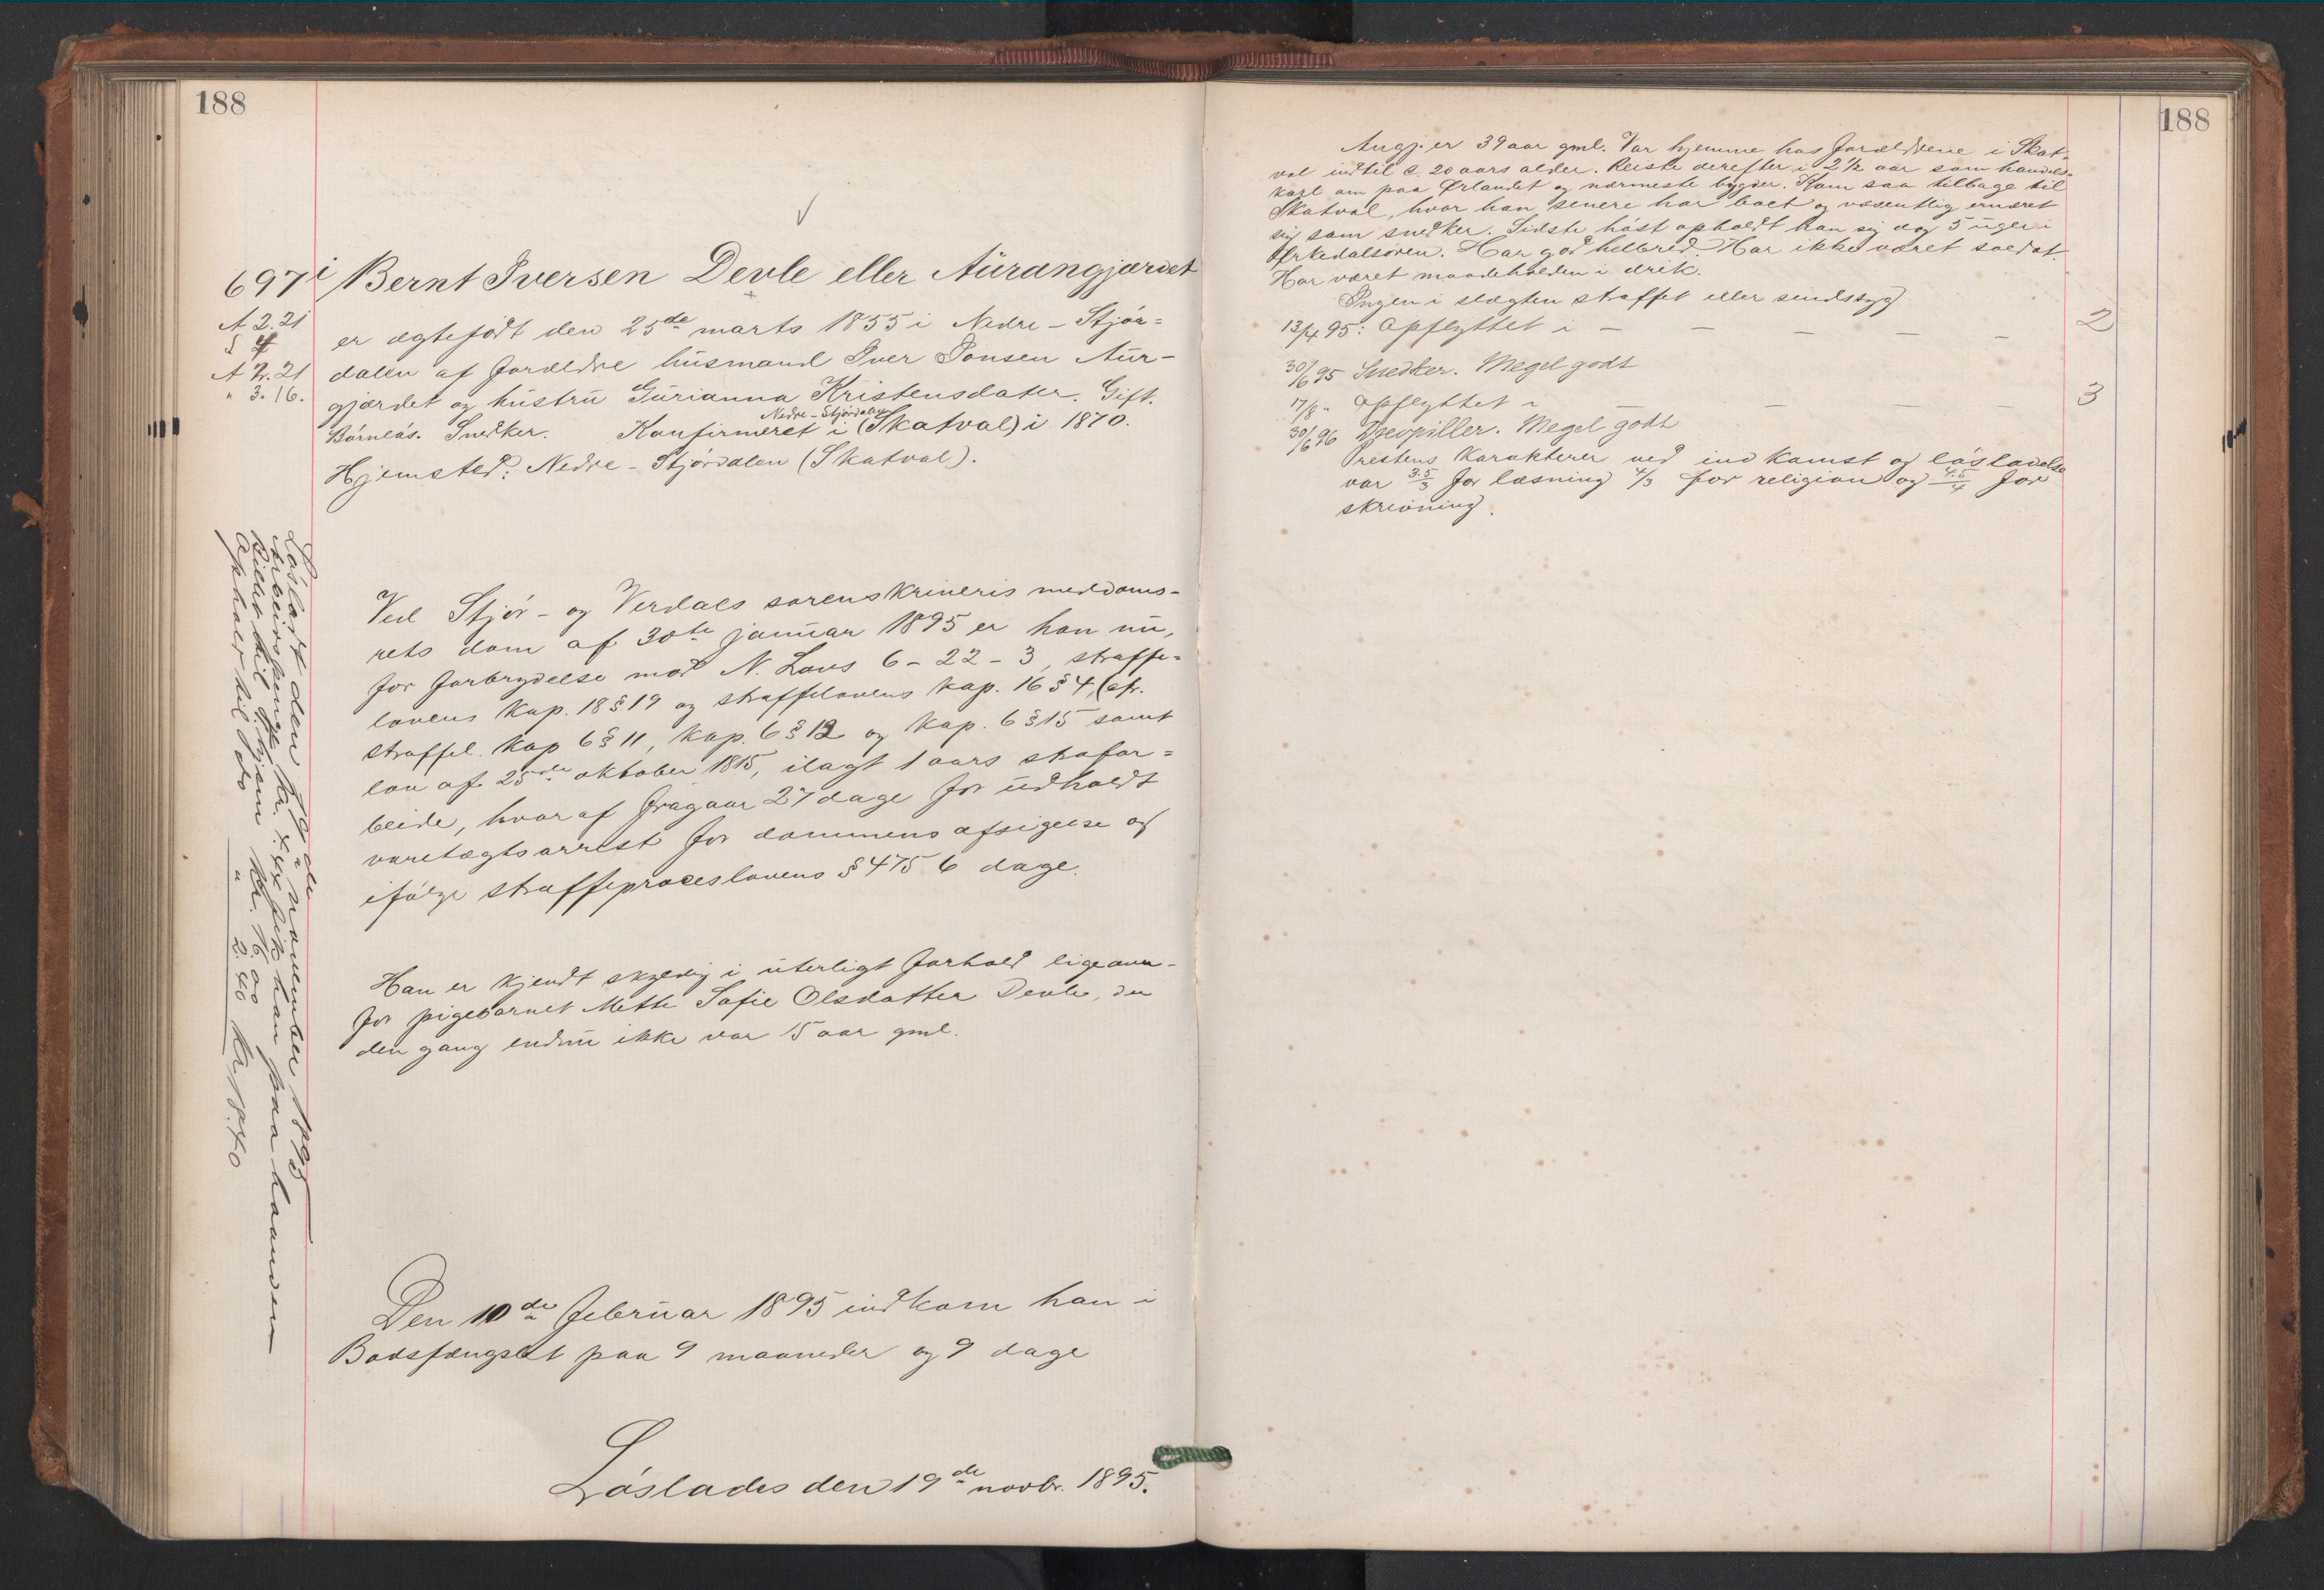 188
697i Bernt Iversen Devle eller Aurangjærdet
A 2.21
S 4
A 2.21
" 3.16.
er ægtefödt den 25de marts 1855 i Nedre-Stjör=
dalen af forældre husmand Iver Jonsen Aur-
gjærdet og hustru Gurianna Kristensdater. Gift.
Nedre-Stjördalen
Börnelös. Snedker. Konfirmeret i (Skatval) i 1870.
Hjemsted: Nedre-Stjördalen (Skatval).
Ved Stjör- og Verdals sorenskriveris meddoms-
rets dom af 30te januar 1895 er han nu,
for forbrydelse mod N. Lovs 6-22-3, straffe=
lovens kap. 18 § 19 og straffelovens kap. 16 § 4, (cfr.
straffel. kap 6 § 11, kap. 6 § 12 og kap. 6 § 15 samt
lov af 25de oktober 1815, ilagt 1 aars strafar=
beide, hvoraf fragaar 27 dage for udholdt
varetægtsarrest for dommens afsigelse og
ifölge straffeproceslovens § 475 6 dage.
Han er kjendt skyldig i uterligt forhold ligeoven-
for pigebarnet Mette Sofie Olsdatter Devle, der
den gang endnu ikke var 15 aar gml.
Den 10de februar 1895 indkom han i
Bodsfængslet paa 9 maaneder og 9 dage
Löslades den 19de novbr. 1895.
Lösladt den 19de november 1895
Arbeidspenge kr. fik han paa haanden
Billet til hjem kr. 16.00
Ophold til do " 2.40 kr 18.40
188
Angj. er 39 aar gml. Var hjemme hos forældrene i Skat-
val indtil c. 20 aars alder. Reiste derefter i 2½ aar som handels-
karl om paa Ørlandet og nærmeste bygder. Kom saa tilbage til
Skatval, hvor han senere har boet og væsentlig ernæret
sig som snedker. Sidste höst opholdt han sig dog 5 uger i
Örkedalsören. Har god helbred. Har ikke været soldat.
Har været maadeholden i drik.
Ingen i slægten straffet eller sindssyg
13/4 95: Opflyttet i – – – – – 2
30/6 95 Snedker. Meget godt
17/8 " Opflyttet i – – – – 3
30/6 96 Meget godt
Prestens karakterer ved indkomst og lösladelse
var 3.5/3 for læsning 4/3 for religion og 4.5/4 for
skrivning.